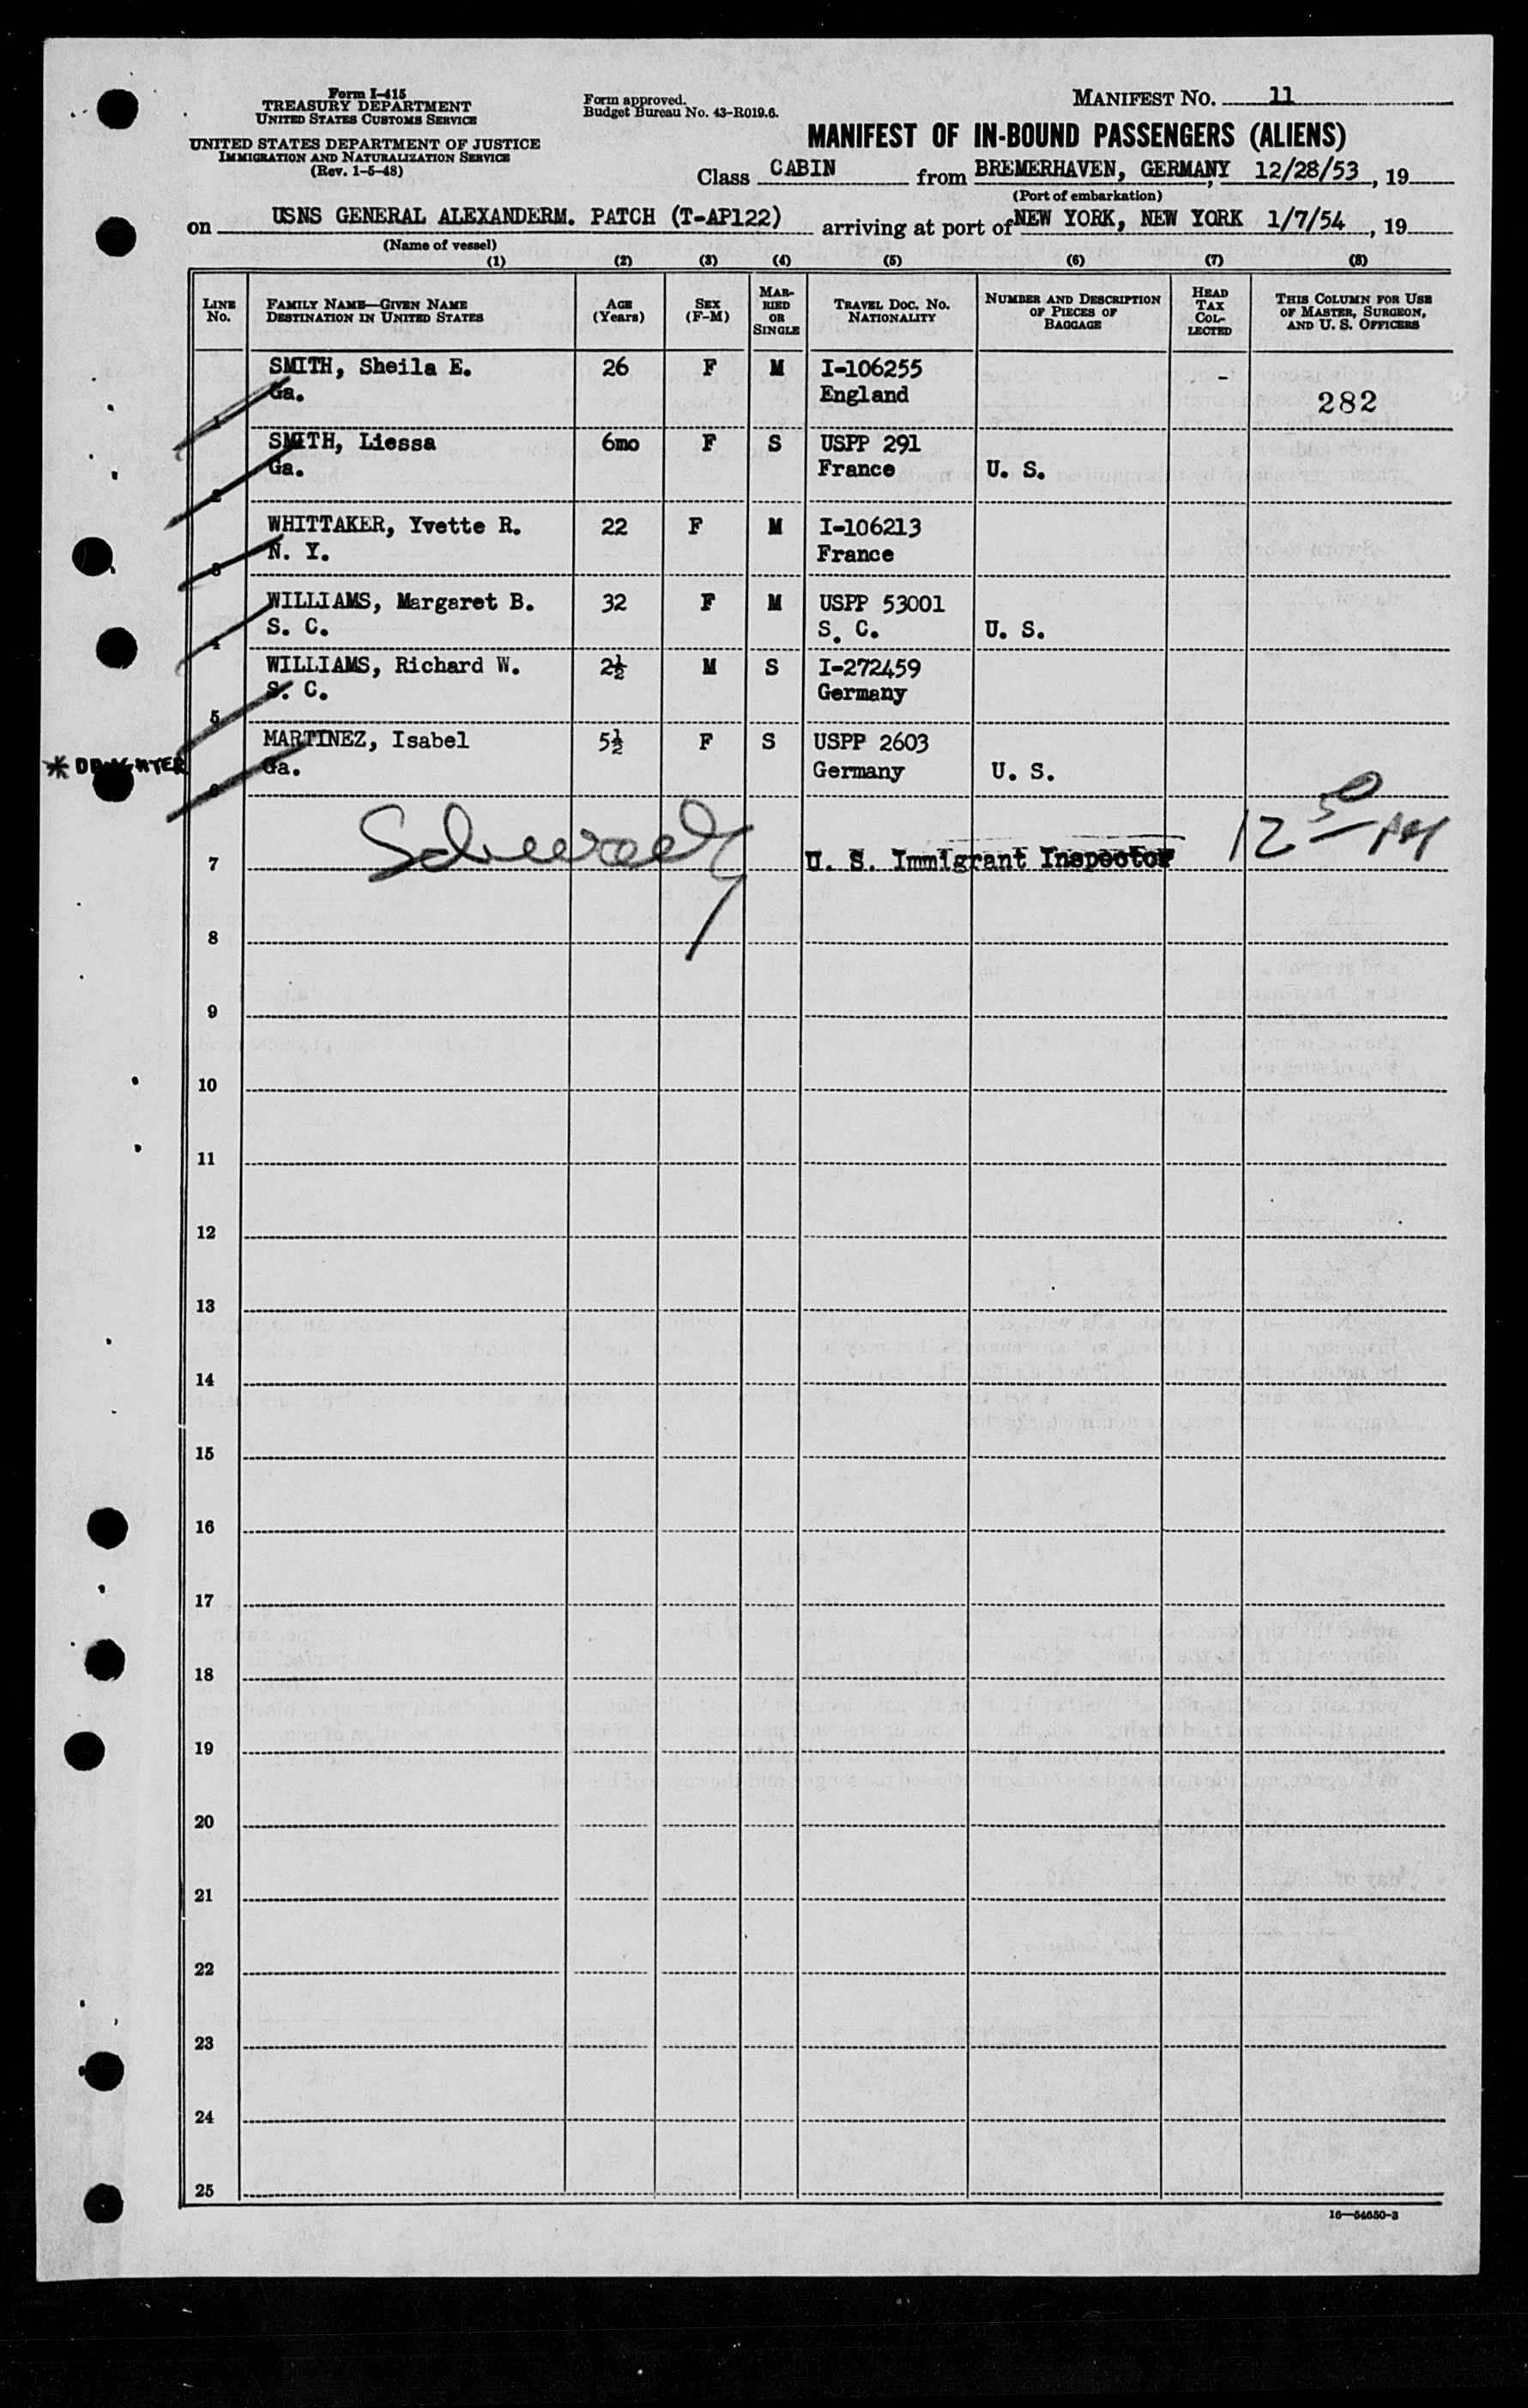 Form I-415
TREASURY DEPARTMENT
UNITED STATES CUSTOMS SERVICE
UNITED STATES DEPARTMENT OF JUSTICE
IMMIGRATION AND NATURALIZATION SERVICE
(Rev. 1-5-48)
Form approved.
Budget Bureau No. 43-R019.6.
MANIFEST NO. 11
MANIFEST OF IN-BOUND PASSENGERS (ALIENS)
Class CABIN from BREMERHAVEN, GERMANY, 12/28/53, 19
(Port of embarkation)
on USNS GENERAL ALEXANDERM. PATCH (T-AP122) arriving at port of NEW YORK, NEW YORK 1/7/54, 19
(Name of vessel)
(1) (2) (3) (4) (5) (6) (7) (8)
LINE No. FAMILY NAME—GIVEN NAME DESTINATION IN UNITED STATES AGE (Years) SEX (F-M) MARRIED OR SINGLE TRAVEL DOC. NO. NATIONALITY NUMBER AND DESCRIPTION OF PIECES OF BAGGAGE HEAD TAX COLLECTED THIS COLUMN FOR USE OF MASTER, SURGEON, AND U. S. OFFICERS
SMITH, Sheila E. 26 F M I-106255 -
1 Ga. England 282
SMITH, Liessa 6mo F S USPP 291
2 Ga. France U. S.
WHITTAKER, Yvette R. 22 F M I-106213
3 N. Y. France
WILLIAMS, Margaret B. 32 F M USPP 53001
4 S. C. S. C. U. S.
WILLIAMS, Richard W. 2½ M S I-272459
5 S. C. Germany
MARTINEZ, Isabel 5½ F S USPP 2603
* DAUGHTER 6 Ga. Germany U. S.
7 U. S. Immigrant Inspector 12 50 PM
8
9
10
11
12
13
14
15
16
17
18
19
20
21
22
23
24
25
16—54650-3